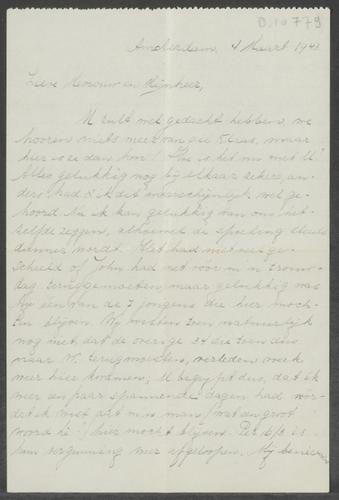 D.10779
Amsterdam, 4 Maart 1943
Lieve Mevrouw en Mijnheer,
U zult wel gedacht hebben, we
hooren niets meer van die Stras, maar
hier is ze dan hoor! Hoe is het nu met U?
Alles gelukkig nog bij elkaar zeker, an-
ders had ik dit waarschijnlijk wel ge-
hoord. Nu ik kan gelukkig van ons het-
zelfde zeggen, alhoewel de spoeling steeds
dunner wordt. Het had niet veel ge-
scheeld of John had net vóór m'n trouw-
dag teruggemoeten, maar gelukkig was
hij een van de 7 jongens die hier moch-
ten blijven. Wij wisten toen natuurlijk
nog niet dat de overige 34 die toen dus
naar W. terugmoesten, verleden week
weer hier kwamen; U begrijpt dus, dat ik
weer een paar spannende dagen had vóór-
dat ik wist dat m'n man (wat een groot
woord hè!) hier mocht blijven. Per is
hun vergunning weer afgeloopen. Wij